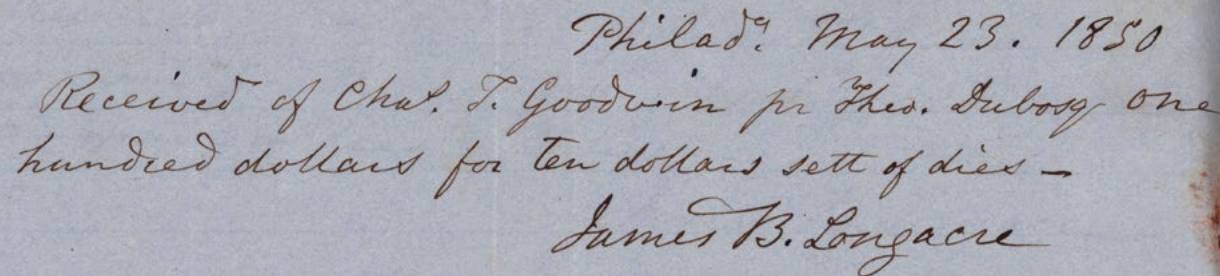 Philadᵃ. May 23. 1850
Received of Chaˢ. T. Goodwin pr Theo. Dubosq one
hundred dollars for ten dollars sett of dies –
James B. Longacre